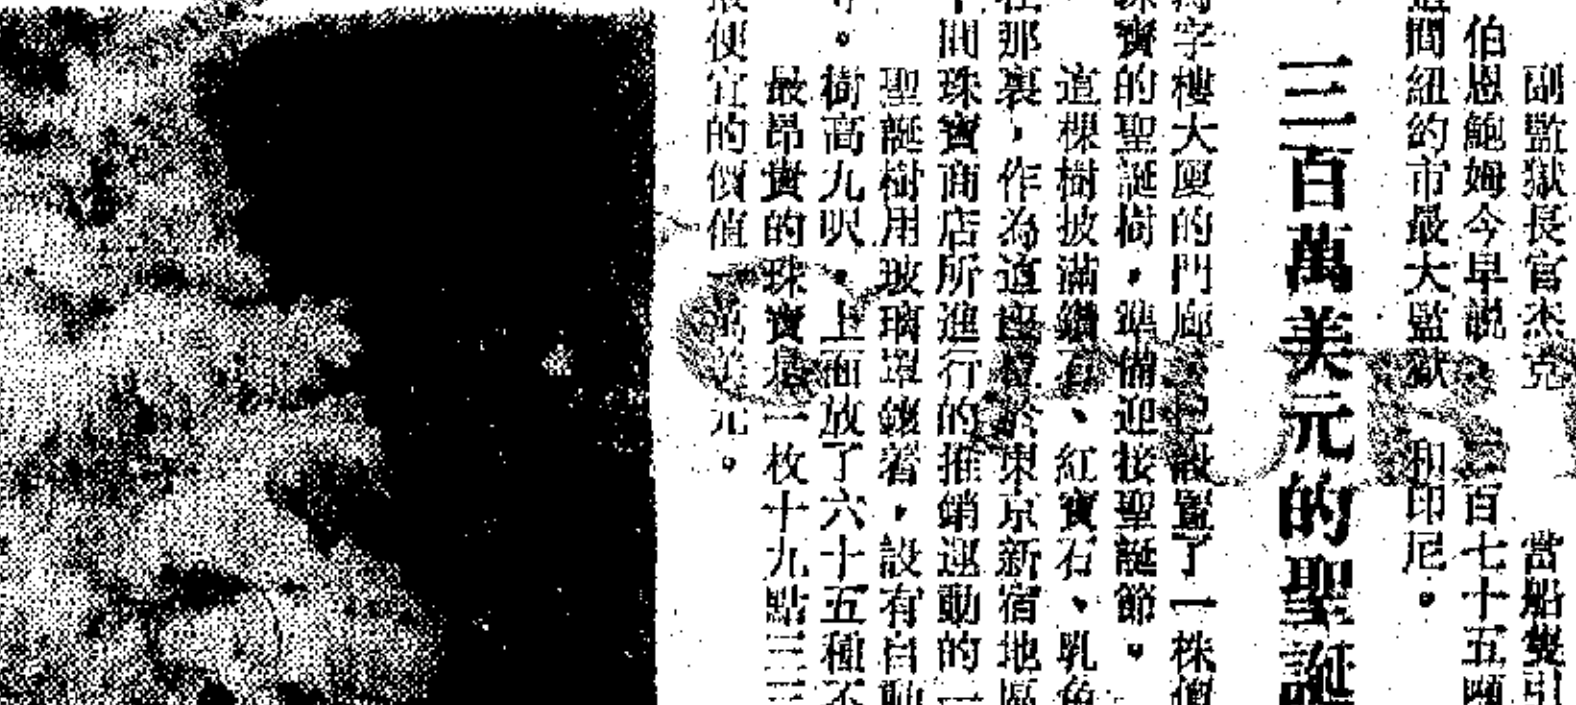 副監獄長官杰克 當船隻引
伯恩鮑姆今早說, 百七十五
這間紐約市最大監獄 和印尼。
三百萬美元的聖誕
寫字樓大廈的門廊,已設置了一株價
珠寶的聖誕樹,準備迎接聖誕節。
這棵樹披滿鑽石、紅寶石、乳色
在那裏,作為這座位於東京新宿地區
間珠寶商店所進行的推銷運動的一
聖誕樹用玻璃罩鑲着,設有自動
。樹高九呎,上面放了六十五種不
最昂貴的珠寶是一枚十九點三三
最便宜的價值 萬美元。